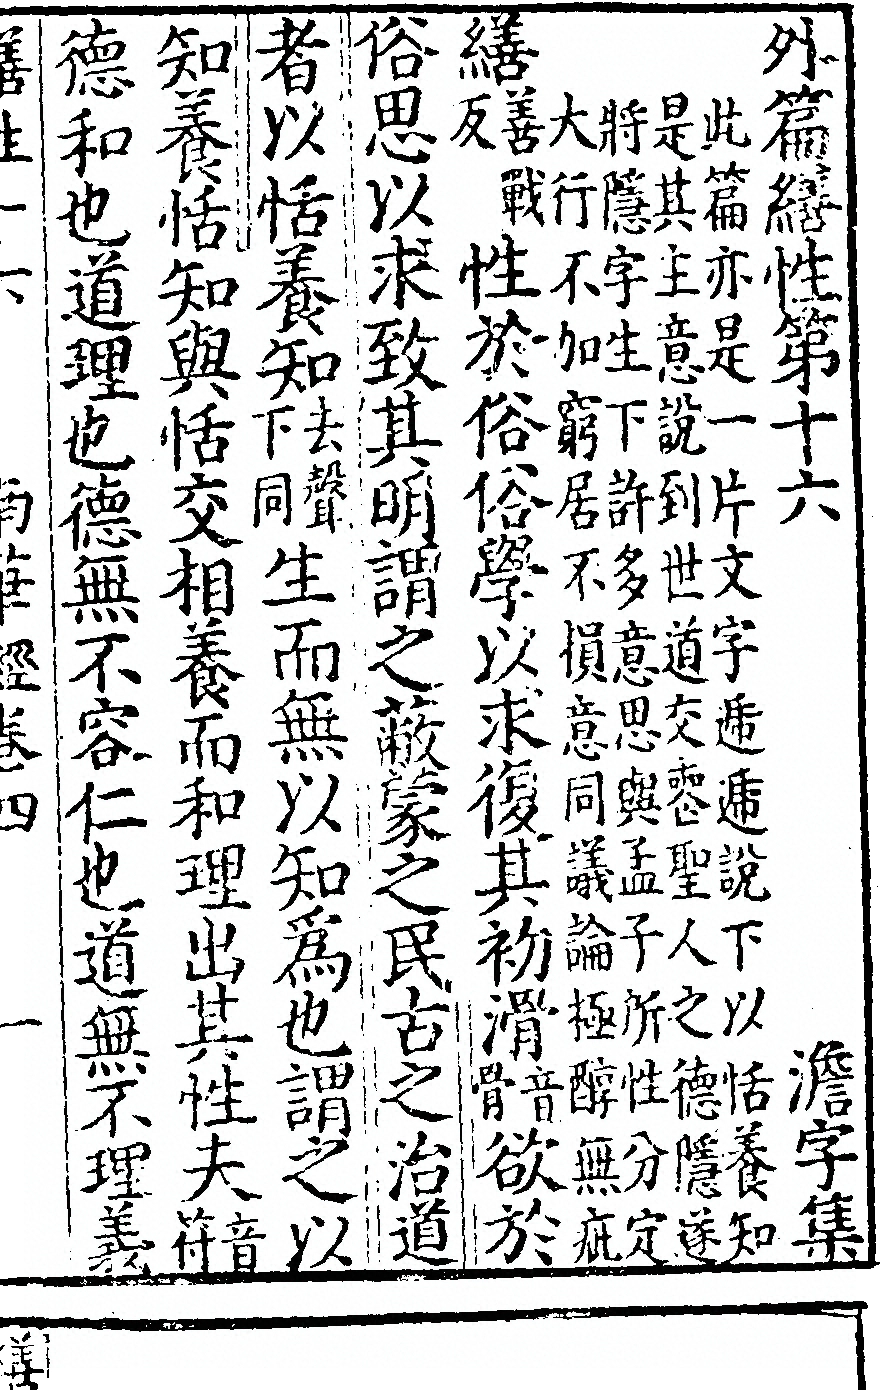 外篇繕性第十六　澹字集
此篇亦是一片文字遞遞說下以恬養知
是其主意說到世道交喪聖人之德隱遂
將隱字生下許多意思與孟子所性分定
大行不加窮居不損意同議論極醇無疵
繕善戰反性於俗俗學以求復其初滑音骨欲於
俗思以求致其明謂之蔽蒙之民古之治道
者以恬養知去聲下同生而無以知爲也謂之以
知養恬知與恬交相養而和理出其性夫音符
德和也道理也德無不容仁也道無不理義
繕性十六　南華經卷四　一